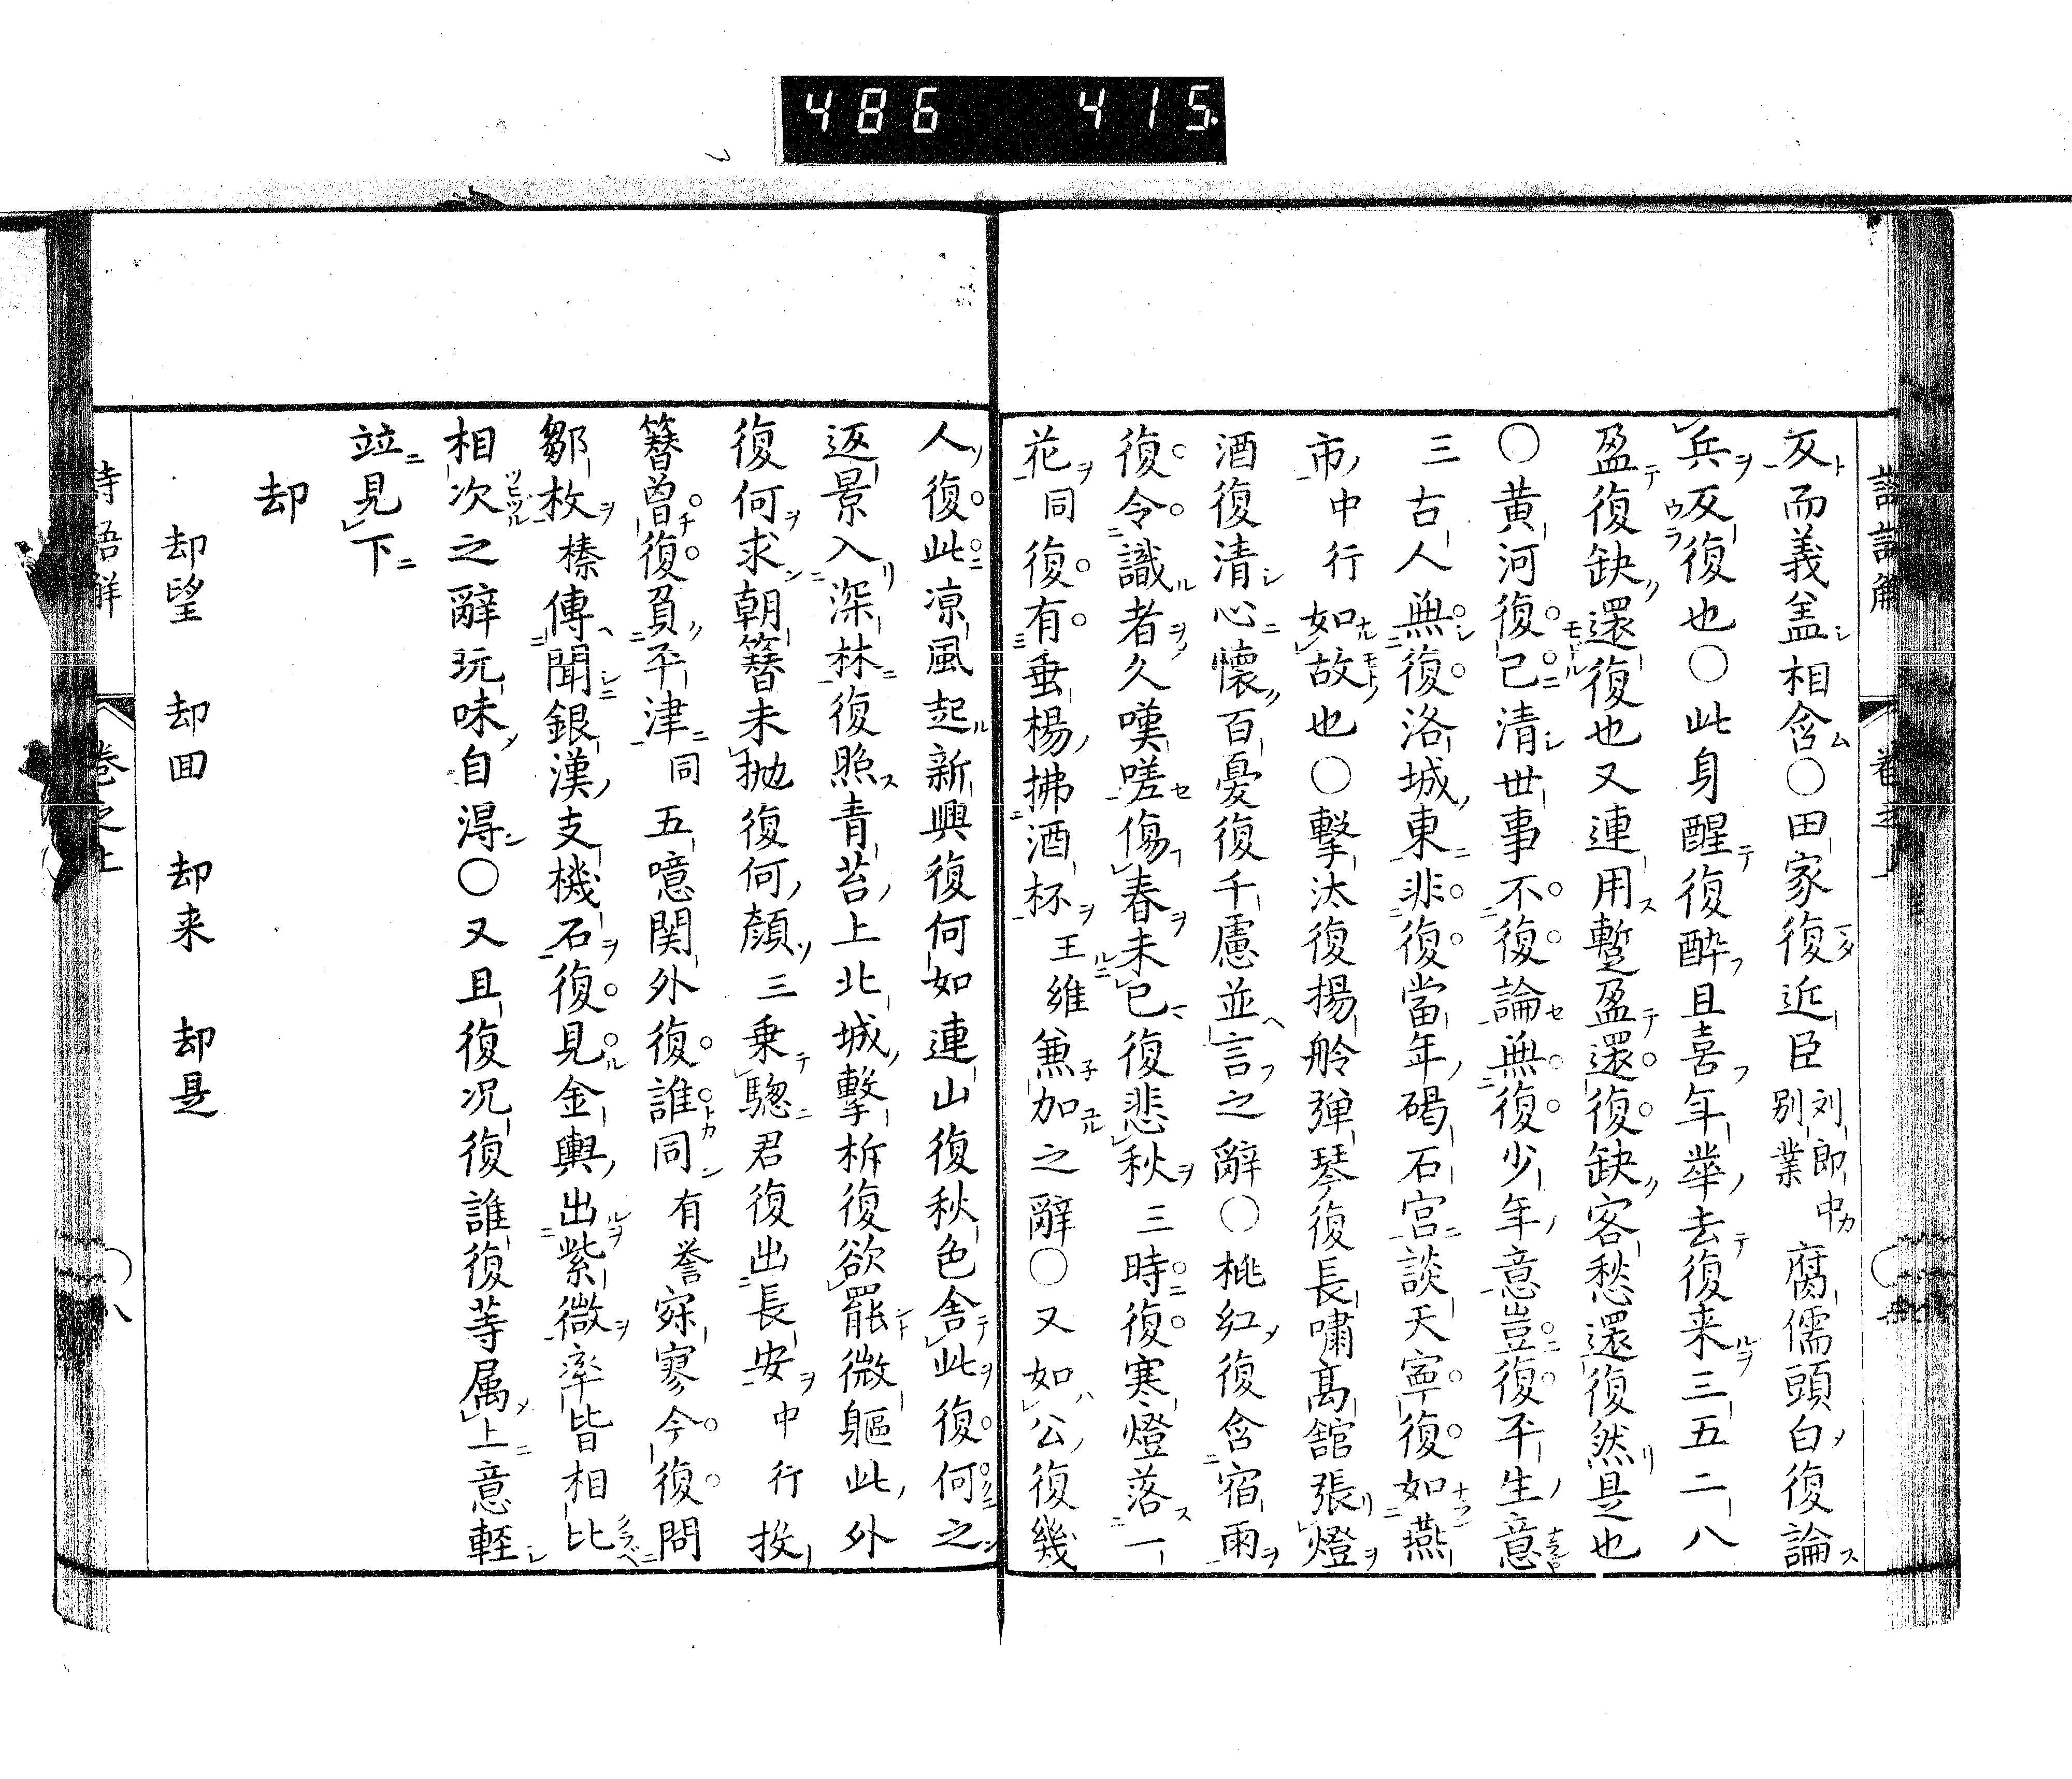 486 415
反而義盖相含○田家復近臣 刘郎中別業 腐儒頭白復論
兵反復也○此身醒復酔且喜年華去復来三五二八
盈復缺還復也又連用蹔盈還復缺客愁還復然是也
○黄河復已清世事不復論無復少年意豈復平生意
三古人無復洛城東非復當年碣石宮談天寧復如燕
市中行如故也○擊汰復揚舲弾琴復長嘯髙舘張燈
酒復清心懷百憂復千慮並言之辭○桃紅復含宿雨
復令識者久嘆嗟傷春未已復悲秋三時復寒燈落一
花同復有垂楊拂酒杯王維兼加之辭○又如公復幾
人復此凉風起新興復何如連山復秋色舎此復何之
返景入深林復照青苔上北城擊柝復欲罷微軀此外
復何求朝簪未抛復何顔三乗驄君復出長安中行投
簪曾復負平津同五噫関外復誰同有誉寂寥今復問
鄒枚榛傳聞銀漢支機石復見金輿出紫微率皆相比
相次之辭玩味自得○又且復况復誰復等属上意軽
竝見下
却
却望 却回 却来 却是
巻之上
八